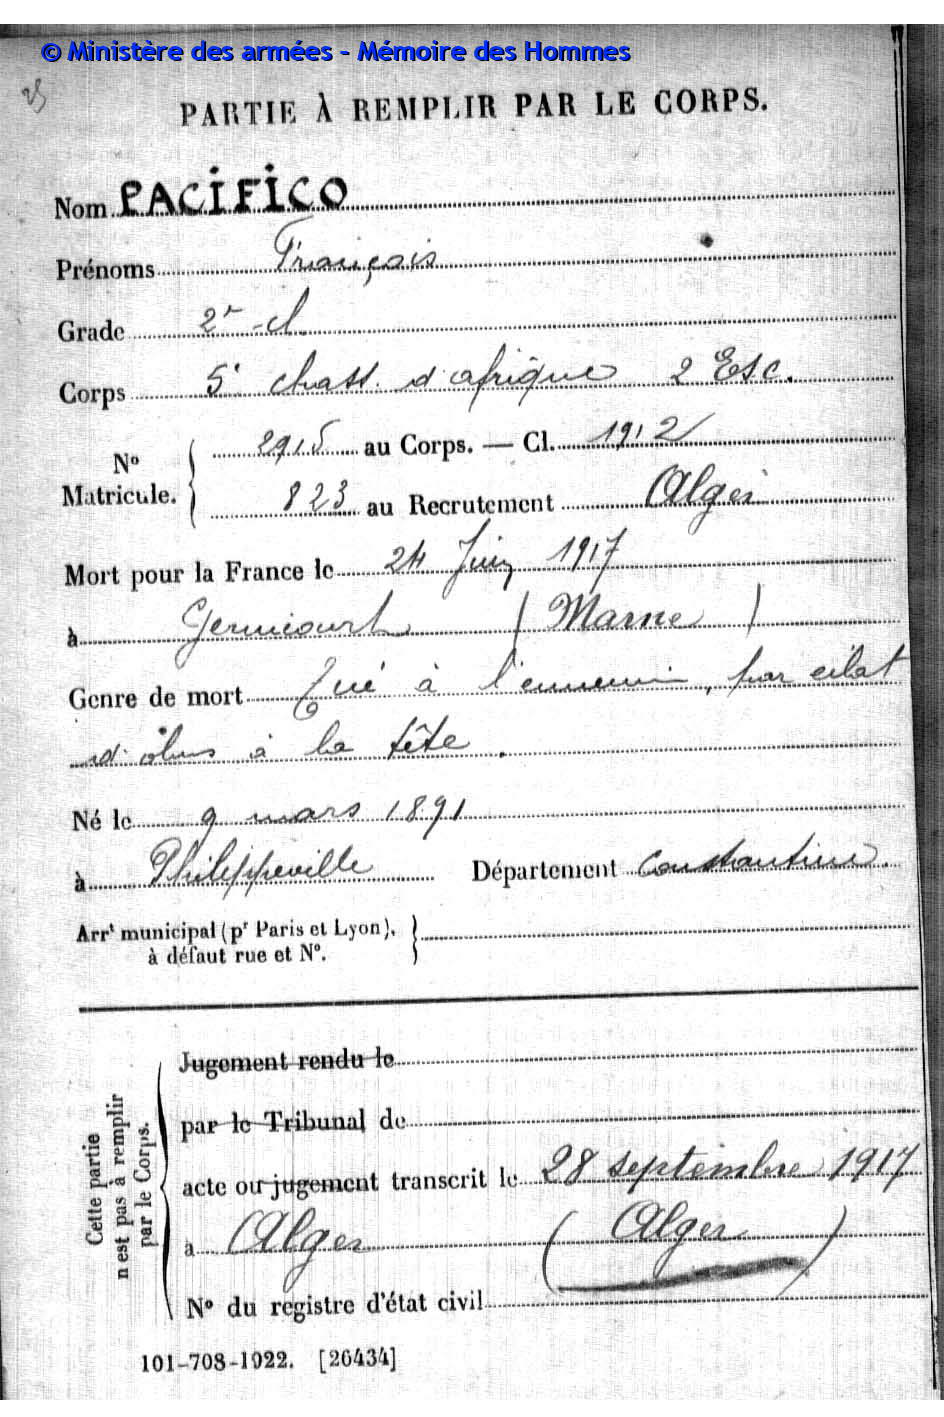 © Ministère des armées - Mémoire des Hommes
25
PARTIE À REMPLIR PAR LE CORPS.
Nom PACIFICO
Prénoms Français
Grade 2e cl
Corps 5e chass. d'afrique 2 Esc.
2915 au Corps. — Cl. 1912
No
Matricule.
823 au Recrutement Alger
Mort pour la France le 24 Juin 1917
à (Marne)
Genre de mort Tué à l'ennemi, par eclat
d'obus à la tête.
Né le 9 mars 1891
à Philippeville Département Constantine.
Arrt municipal (pr Paris et Lyon),
à défaut rue et No.
Jugement rendu le
par le Tribunal de
acte ou jugement transcrit le 28 septembre 1917
à Alger (Alger)
No du registre d'état civil
Cette partie
n'est pas à remplir
par le Corps.
101-708-1922. [26434]